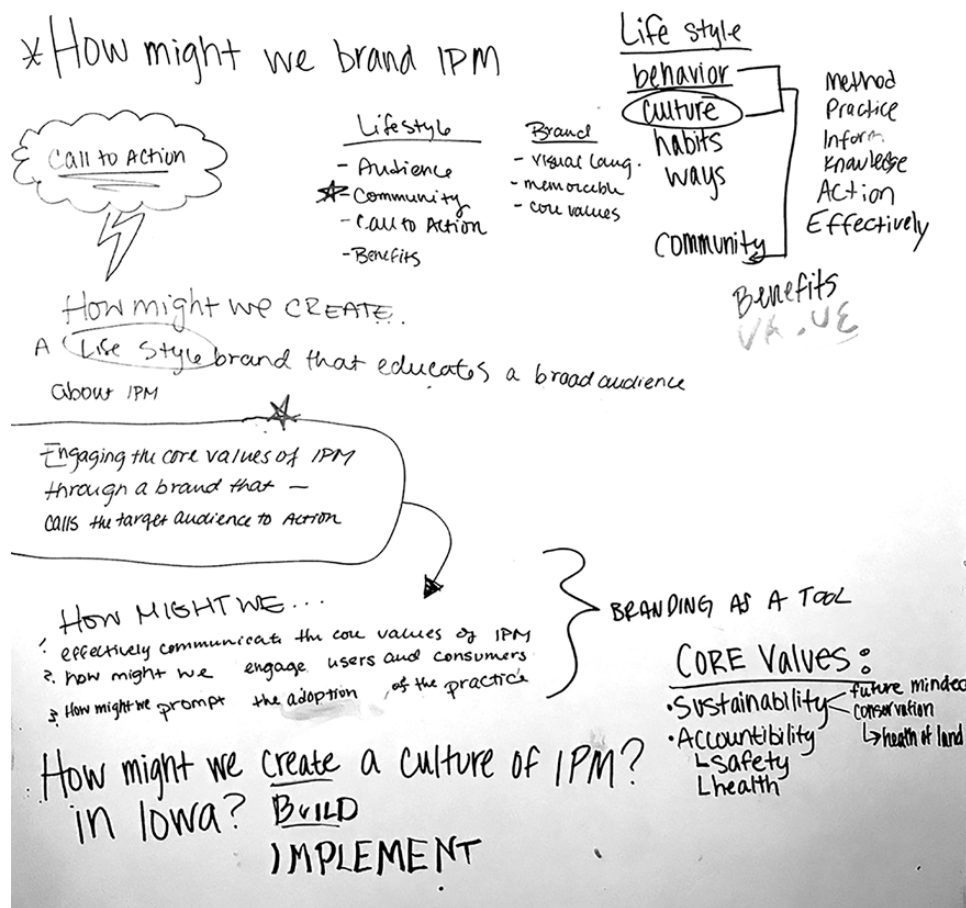 *How might we brand IPM
Call to Action
Lifestyle
- Audience
- Community
- Call to Action
- Benefits
Brand
- visual lang.
- memorable
- core values
Life style
behavior
culture
habits
ways
community
Method
Practice
Inform
Knowledge
Action
Effectively
Benefits
VALUE
How might we CREATE...
A Life Style brand that educates a broad audience
about IPM
Engaging the core values of IPM
through a brand that —
calls the target audience to Action
How MIGHT WE...
1. effectively communicate the core values of IPM
2. how might we engage users and consumers
3. How might we prompt the adoption of the practice
BRANDING AS A TOOL
CORE Values:
•Sustainability
future minded
conservation
health of land
•Accountibility
safety
health
How might we create a culture of IPM?
in Iowa? BUILD
IMPLEMENT